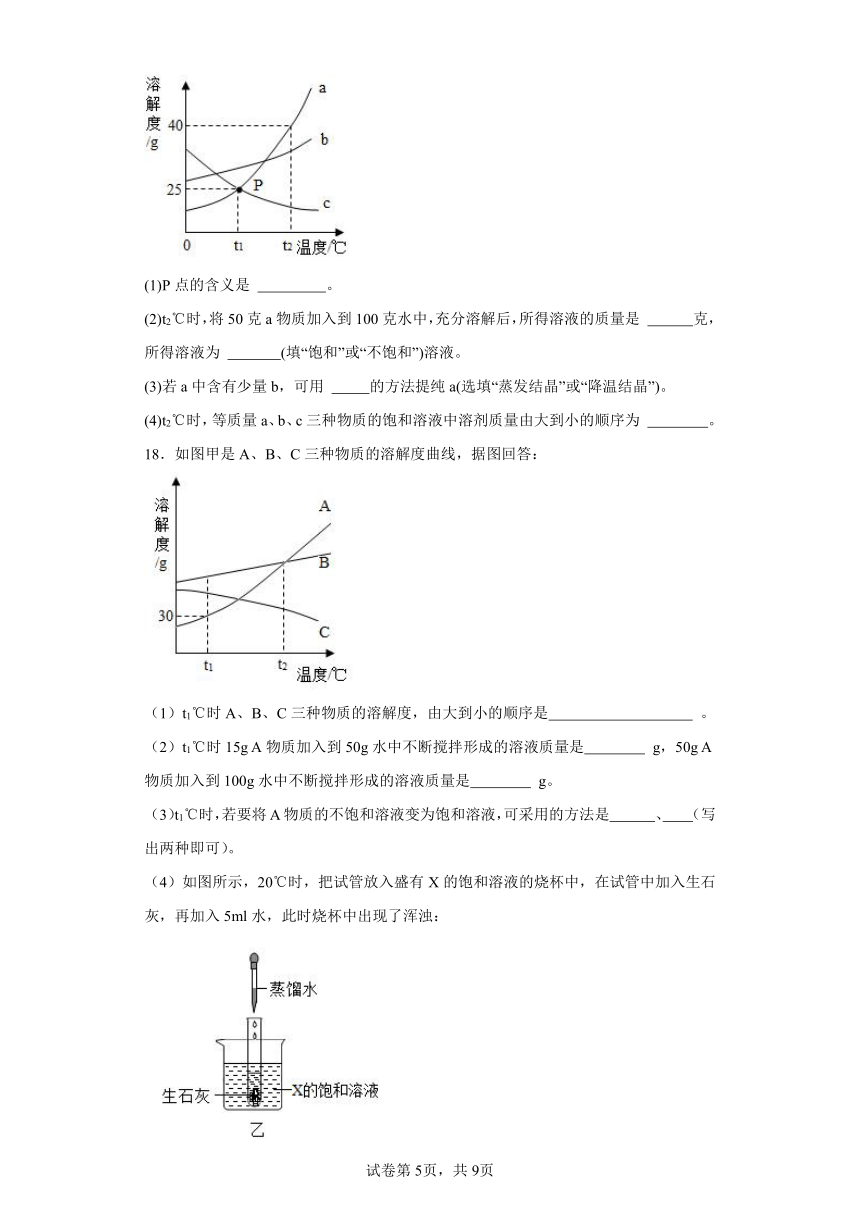 溶解度/g
40
25
a
b
P
c
0
t₁
t₂
温度/℃
(1)P 点的含义是 ________。
(2)t₂℃时,将 50 克 a 物质加入到 100 克水中,充分溶解后,所得溶液的质量是 ______克,
所得溶液为 _______(填“饱和”或“不饱和”)溶液。
(3)若 a 中含有少量 b，可用 _____的方法提纯 a(选填“蒸发结晶”或“降温结晶”)。
(4)t₂℃时,等质量 a、b、c 三种物质的饱和溶液中溶剂质量由大到小的顺序为 ________。
18．如图甲是 A、B、C 三种物质的溶解度曲线，据图回答：
溶解度/g
30
A
B
C
t₁
t₂
温度/℃
（1）t₁℃时 A、B、C 三种物质的溶解度，由大到小的顺序是___________________ 。
（2）t₁℃时 15g A 物质加入到 50g 水中不断搅拌形成的溶液质量是________ g，50g A
物质加入到 100g 水中不断搅拌形成的溶液质量是________ g。
（3）t₁℃时,若要将 A 物质的不饱和溶液变为饱和溶液,可采用的方法是______、____（写
出两种即可）。
（4）如图所示，20℃时，把试管放入盛有 X 的饱和溶液的烧杯中，在试管中加入生石
灰，再加入 5ml 水，此时烧杯中出现了浑浊：
蒸馏水
生石灰
X的饱和溶液
乙
试卷第 5页，共 9页